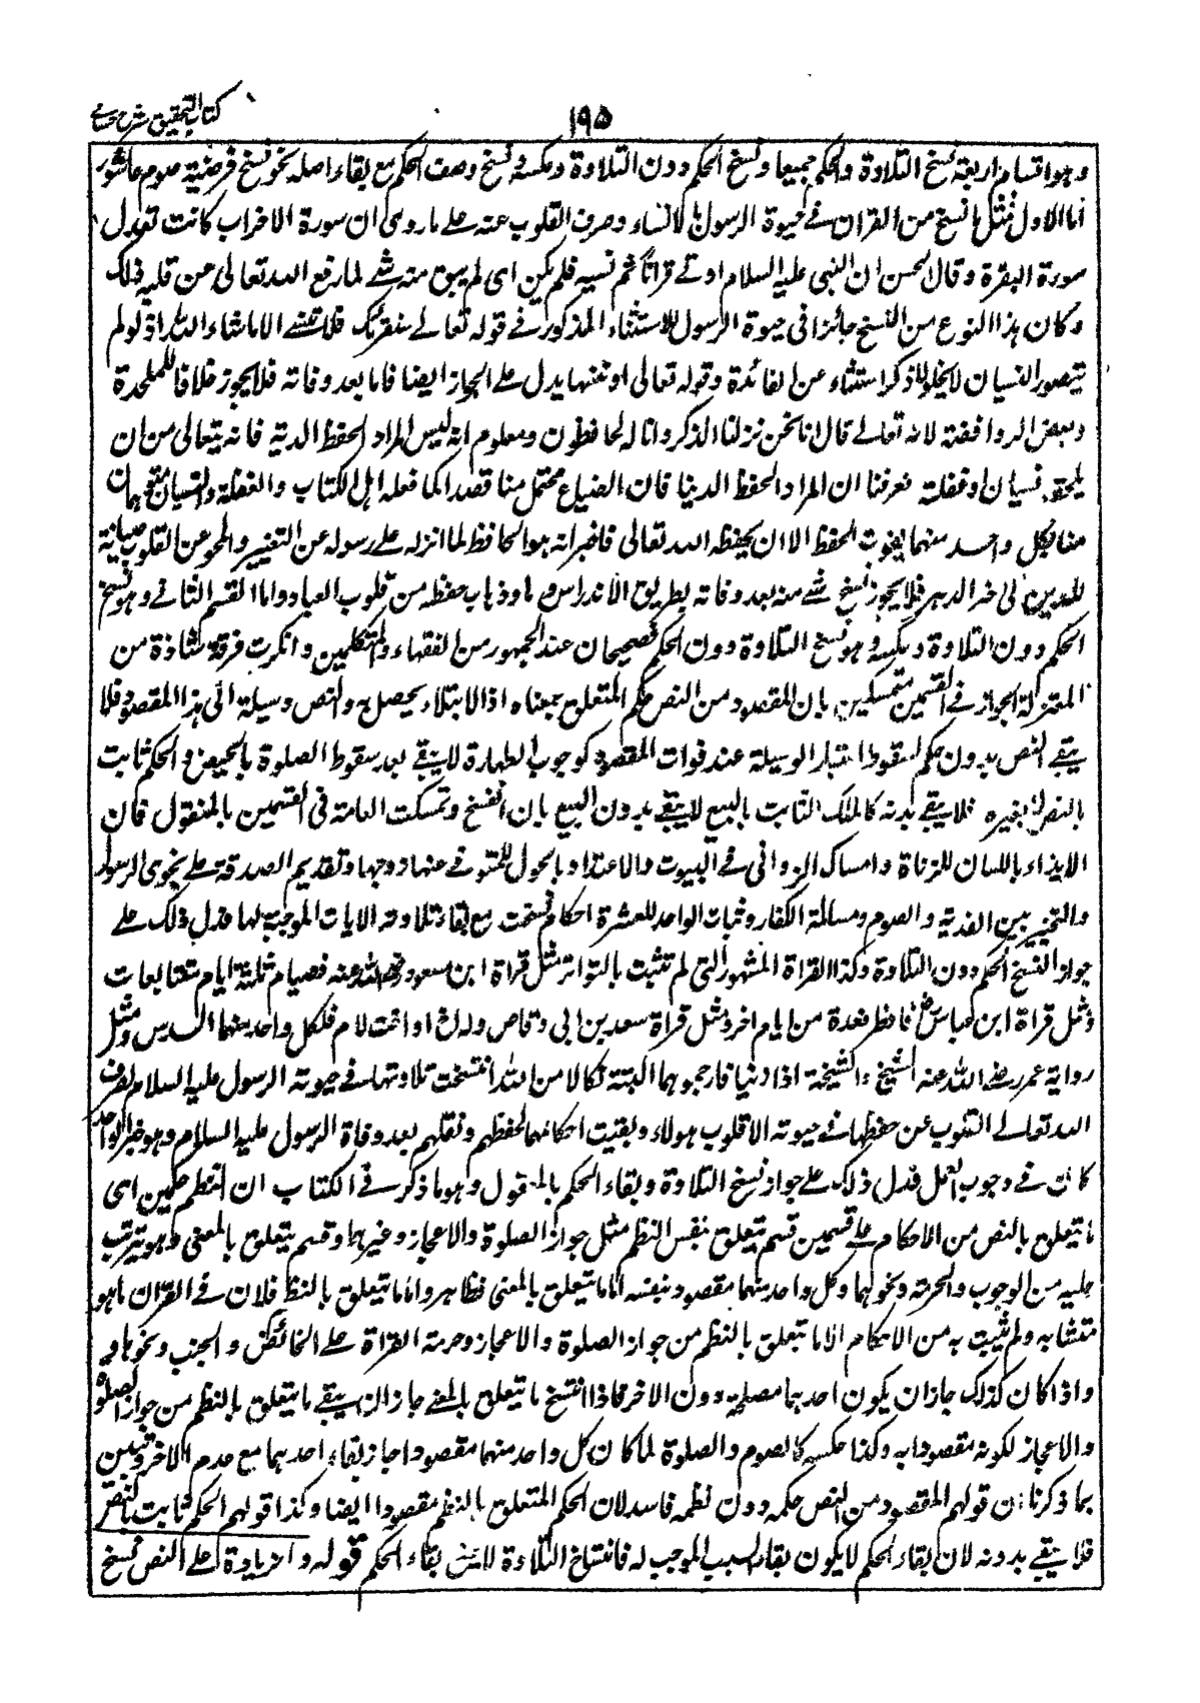 كتاب التحقيق شرح حسامى
١٩٥
وهو اقسام اربعة نسخ التلاوة والحكم جميعا ونسخ الحكم دون التلاوة وعكسه ونسخ وصف الحكم مع بقاء اصله نحو نسخ فرضية صوم عاشور
اما الاول فمثل ما نسخ من القران فى حيوة الرسول بالانساء وصرف القلوب عنه على ما روى ان سورة الاحزاب كانت تعدل
سورة البقرة وقال الحسن ان النبى عليه السلام اوتى قرانا ثم نسيه فلم يكن اى لم يبق منه شئ لما رفع الله تعالى عن قلبه ذلك
وكان هذا النوع من النسخ جائزا فى حيوة الرسول للاستثناء المذكور فى قوله تعالى سنقرئك فلا تنسى الا ما شاء الله اذ لو لم
يتصور النسيان لا يخلو ذكر استثناء عن الفائدة وقوله تعالى او ننسها يدل على الجواز ايضا فاما بعد وفاته فلا يجوز خلافا للملحدة
وبعض الروافضة لانه تعالى قال انا نحن نزلنا الذكر وانا له لحافظون ومعلوم انه ليس المراد الحفظ لديه فانه يتعالى من ان
يلحقه نسيان او غفلة فعرفنا ان المراد الحفظ لدينا فان الضياع محتمل منا قصدا كما فعله اهل الكتاب والغفلة والنسيان متوهمان
منا وبكل واحد منهما يفوت الحفظ الا ان يحفظه الله تعالى فاخبر انه هو الحافظ لما انزله على رسوله عن التغيير والمحو عن القلوب صيانة
للدين الى اخر الدهر فلا يجوز نسخ شئ منه بعد وفاته بطريق الاندراس وذهاب حفظه من قلوب العباد واما القسم الثانى وهو نسخ
الحكم دون التلاوة وعكسه وهو نسخ التلاوة دون الحكم فصحيحان عند الجمهور من الفقهاء والمتكلمين وانكرت فرقة شاذة من
المعتزلة الجواز فى القسمين متمسكين بان المقصود من النص حكمه المتعلق بمعناه اذ الابتلاء يحصل به والنص وسيلة الى هذا المقصود فلا
يبقى النص بدون حكمه لسقوط اعتبار الوسيلة عند فوات المقصود كوجوب الطهارة لا يبقى بعد سقوط الصلوة بالحيض والحكم ثابت
بالنص لا بغيره فلا يبقى بدونه كالملك الثابت بالبيع لا يبقى بدون البيع بان انفسخ وتمسكت العامة فى القسمين بالمنقول فان
الايذاء باللسان للزناة وامساك الزوانى فى البيوت والاعتداد بالحول للمتوفى عنها زوجها وتقديم الصدقة على نجوى الرسول
والتخيير بين الفدية والصوم ومسالمة الكفار وثبات الواحد للعشرة احكام نسخت مع بقاء تلاوته الايات الموجبة لها فدل ذلك على
جواز النسخ الحكم دون التلاوة وكذا القراة المشهور التى لم تثبت بالتواتر مثل قراة ابن مسعود رضى الله عنه فصيام ثلثة ايام متتابعات
ومثل قراة ابن عباس رض فافطر فعدة من ايام اخر ومثل قراة سعد بن ابى وقاص وله اخ او اخت لام فلكل واحد منهما السدس ومثل
رواية عمر رضى الله عنه الشيخ والشيخة اذا زنيا فارجموهما البتة نكالا من الله انتسخت تلاوتها فى حيوته الرسول عليه السلام بصرف
الله تعالى القلوب عن حفظها فى حيوته الا قلوب هولاء وبقيت احكامها بحفظهم ونقلهم بعد وفاة الرسول عليه السلام وهو خبر الواحد
كان فى وجوب العمل فدل ذلك على جواز نسخ التلاوة وبقاء الحكم بالمنقول وهو ما ذكر فى الكتاب ان للنظم حكمين اى
ما يتعلق بالنص من الاحكام على قسمين قسم يتعلق بنفس النظم مثل جواز الصلوة والاعجاز وغيرهما وقسم يتعلق بالمعنى وهو يترتب
عليه من الوجوب والحرمة ونحوهما وكل واحد منهما مقصود بنفسه اما ما يتعلق بالمعنى فظاهر واما ما يتعلق بالنظم فلان فى القران ما هو
متشابه ولم يثبت به من الاحكام الا ما تتعلق بالنظم من جواز الصلوة والاعجاز وحرمة القراة على الحائض والجنب ونحوهما و
واذا كان كذلك جاز ان يكون احدهما مصلحة دون الاخر فاذا انتسخ ما يتعلق بالمعنى جاز ان يبقى ما يتعلق بالنظم من جواز الصلوة
والاعجاز لكونه مقصودا به وكذا عكسه كالصوم والصلوة لما كان كل واحد منهما مقصودا جاز بقاء احدهما مع عدم الاخر وتبين
بما ذكرنا ان قولهم المقصود من النص حكمه دون نظمه فاسد لان الحكم المتعلق بالنظم مقصود ايضا وكذا قولهم الحكم ثابت بالنص
فلا يبقى بدونه لان بقاء الحكم لا يكون ببقاء السبب الموجب له فانتساخ التلاوة لا يمنع بقاء الحكم قوله والزيادة على النص نسخ